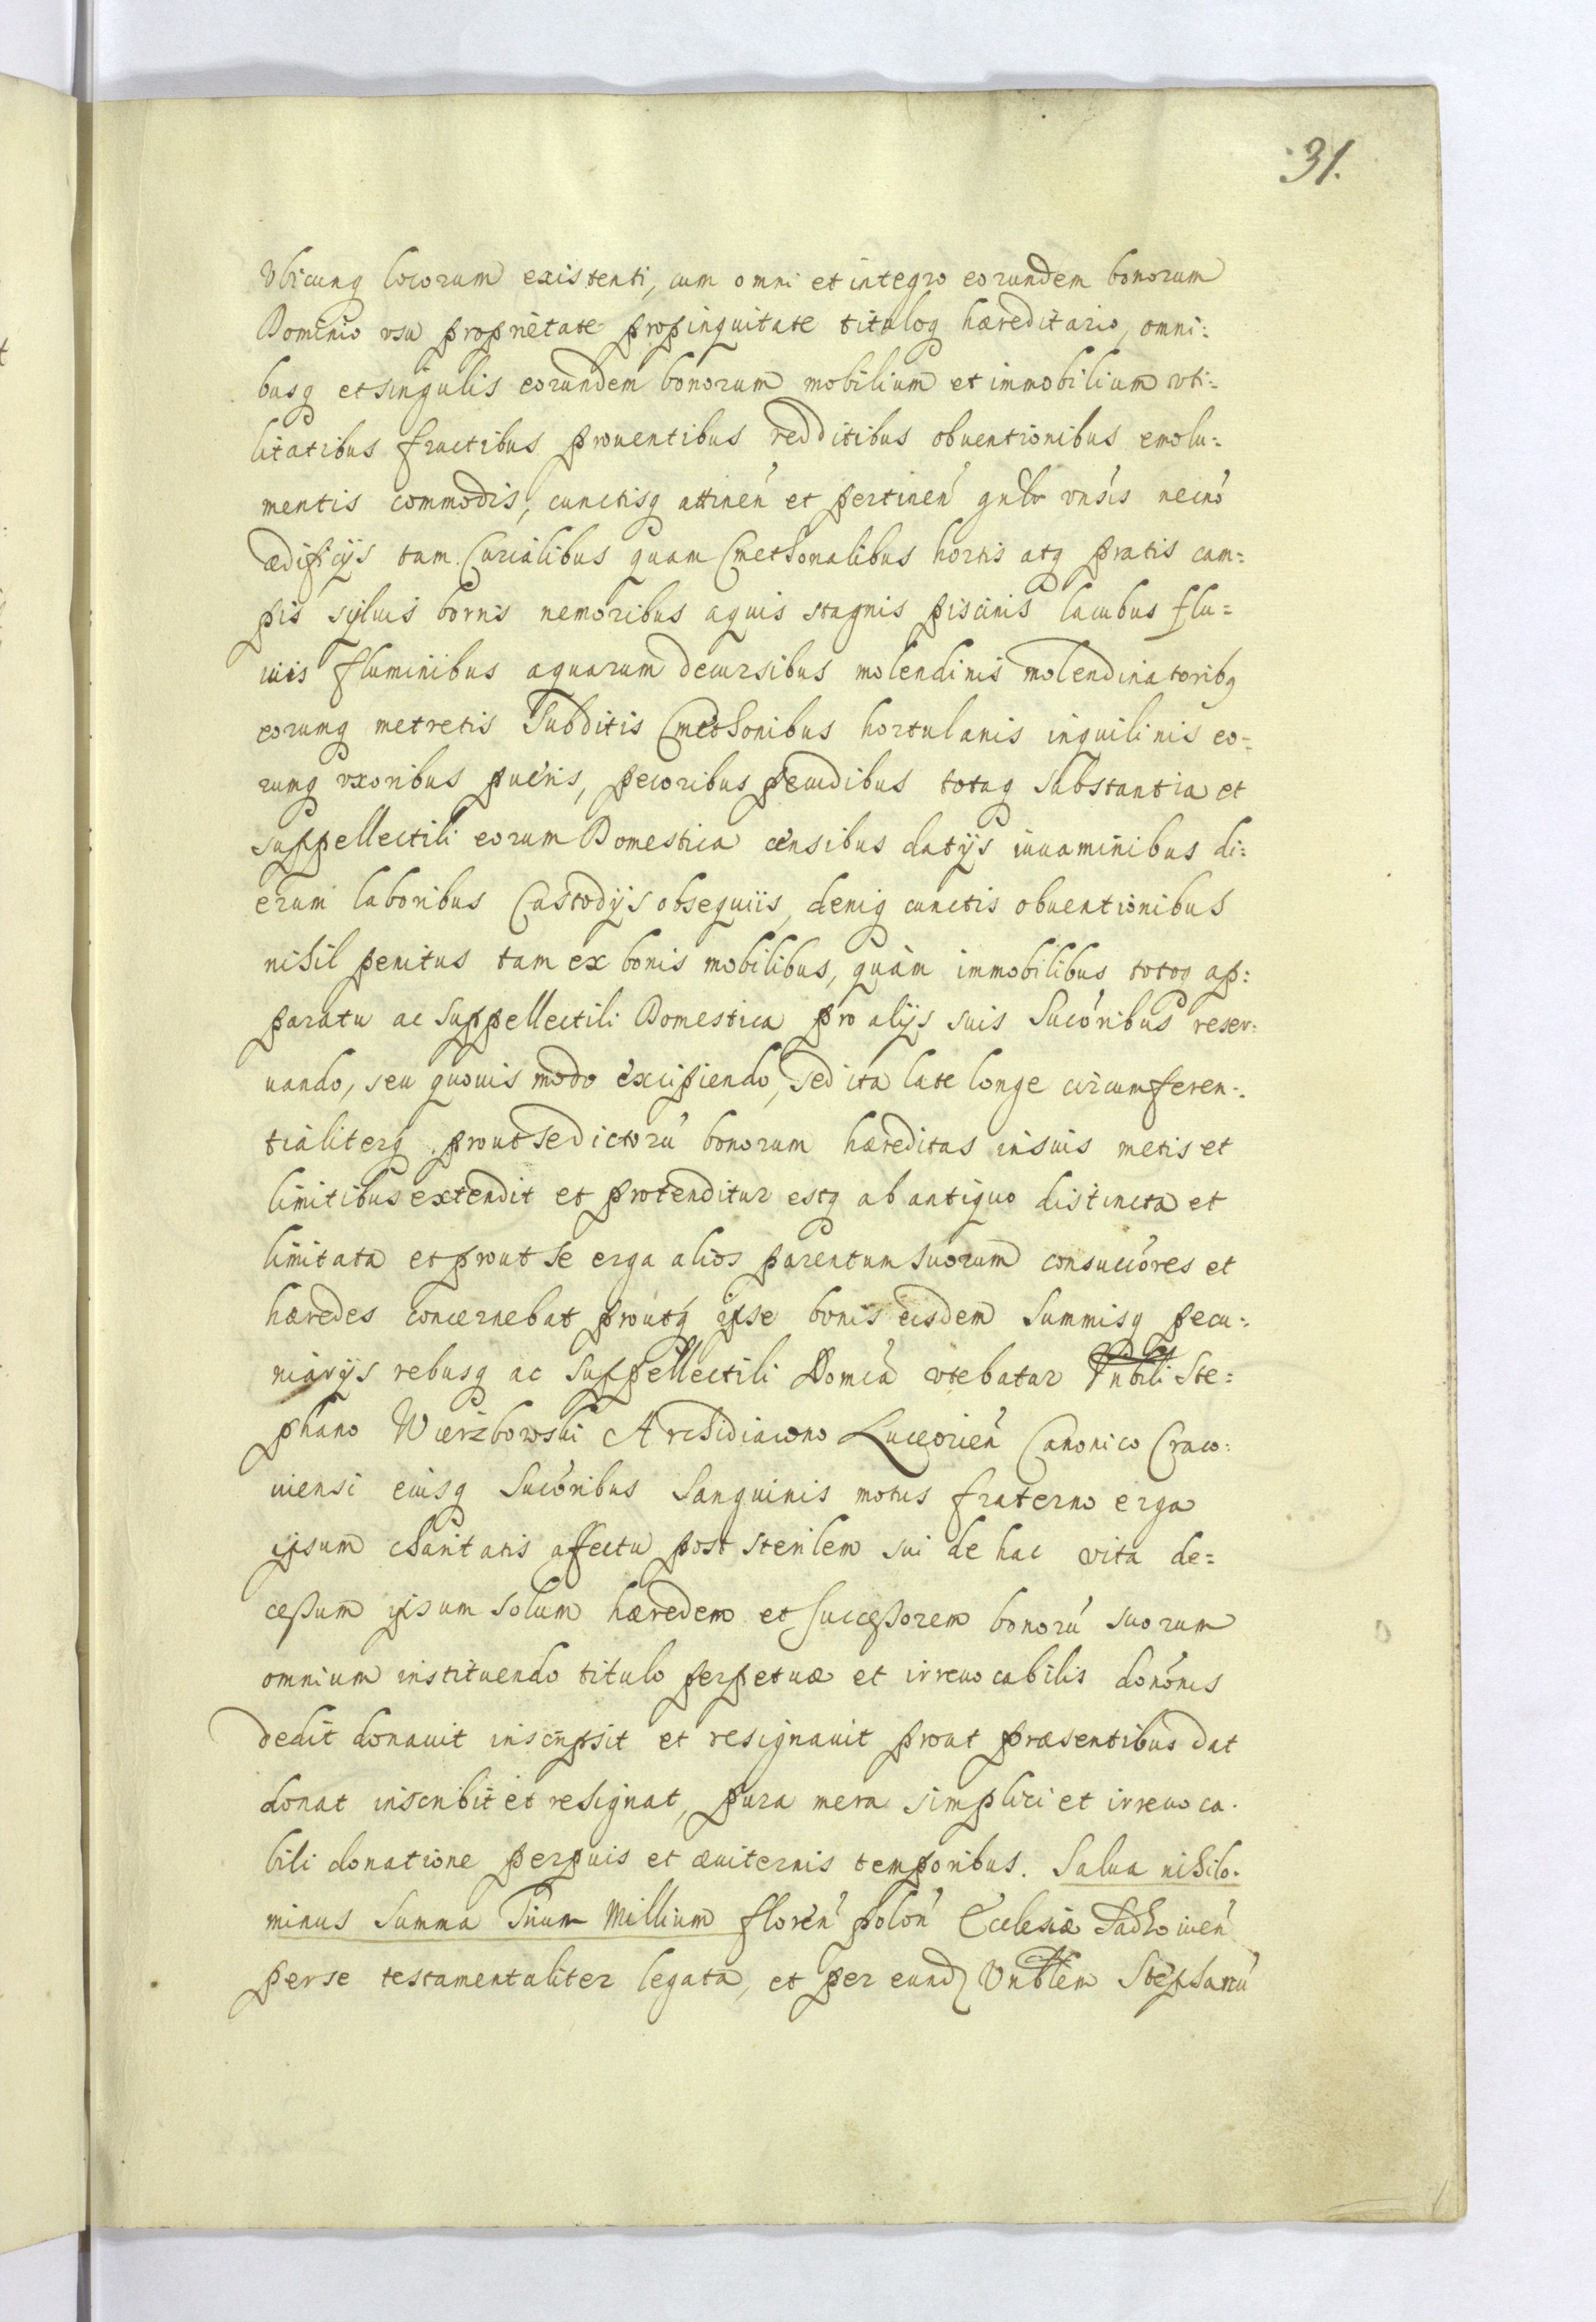 31.
Vbicunq locorum existenti, cum omni et integro eorundem bonorum
Dominio vsu proprietate propinquitate tituloq hæreditario, omni:
busq et singulis eorundem bonorum mobilium et immobilium vti:
litatibus fructibus prouentibus redditibus obuentionibus emolu:
mentis commodis, cunctisq attinen̄ et pertinen̄ gnlr vnsis necnō
ædificijs tam Curialibus quam Cmethonalibus hortis atq pratis cam:
pis syluis borris nemoribus aquis stagnis piscinis lacubus flu:
uiis fluminibus aquarum decursibus molendinis molendinatoribq
eorumq metretis Subditis Cmethonibus hortulanis inquilinis eo:
rumq vxoribus pueris, pecoribus pecudibus totaq substantia et
suppellectili eorum Domestica censibus datijs iuuaminibus di:
erum laboribus Custodijs obsequiis, deniq cunctis obuentionibus
nihil penitus tam ex bonis mobilibus, quàm immobilibus totoq ap:
paratu ac suppellectili Domestica pro alijs suis sucōribus reser:
uando, seu quouis modo excipiendo, sed ita late longe circumferen:
tialiterq prout se dictorū bonorum hæreditas in suis metis et
limitibus extendit et protenditur estq ab antiquo distincta et
limitata et prout se erga alios parentum suorum consuccōres et
hæredes concernebat proutq ipse bonis eisdem summisq pecu:
niarijs rebusq ac suppellectili Domcā vtebatur Vnbili Ste:
phano Wierzbowski Archidiacono Luceorien̄ Canonico Craco:
uiensi eiusq sucōribus sanguinis motus fraterno erga
ipsum charitatis affectu post sterilem sui de hac vita de:
cessum ipsum solum hæredem et successorem bonorū suorum
omnium instituendo titulo perpetuæ et irreuocabilis donōnis
dedit donauit inscripsit et resignauit prout præsentibus dat
donat inscribit et resignat, pura mera simplici et irreuoca:
bili donatione perpuis et æuiternis temporibus. Salua nihilo:
minus summa Trium Millium floren̄ polon̄ Ecclesiæ
per se testamentaliter legata, et per eund Vnblem Stephanū